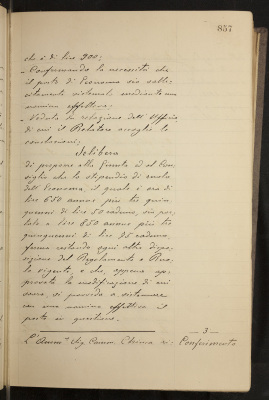 857
che è di lire 200;
- Confermando la necessità che
il posto di Economo sia solle-
citamente sistemato mediante una
nomina effettiva;
- Veduta la relazione dell'Ufficio
di cui il Relatore accoglie le
conclusioni;
Delibera
di proporre alla Giunta ed al Con-
siglio che lo stipendio di ruolo
dell'Economo, il quale è ora di
lire 650 annue più tre quin-
quenni di lire 50 caduno, sia por-
tato a lire 850 annue più tre
quinquenni di lire 75 caduno
ferma restando ogni altra dispo-
sizione del Regolamento e Ruo-
lo vigente e che, appena ap-
provata la modificazione di cui
sopra, si provveda a sistemare
con una nomina effettiva il
posto in questione.
- 3 -
Conferimento
L'Assess.e Sig. Comm.